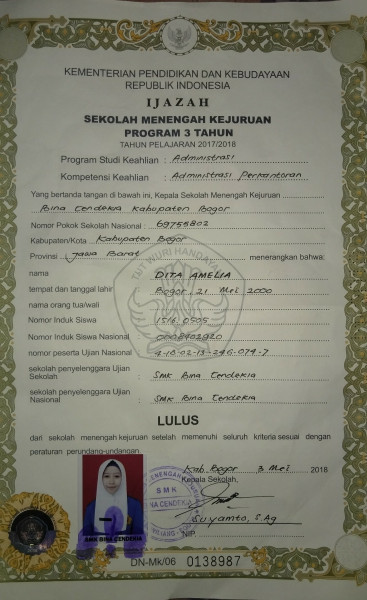 KEMENTERIAN PENDIDIKAN DAN KEBUDAYAAN
REPUBLIK INDONESIA
IJAZAH
SEKOLAH MENENGAH KEJURUAN
PROGRAM 3 TAHUN
TAHUN PELAJARAN 2017/2018
Program Studi Keahlian : Administrasi
Kompetensi Keahlian : Administrasi Perkantoran
Yang bertanda tangan di bawah ini, Kepala Sekolah Menengah Kejuruan
Bina Cendekia Kabupaten Bogor
Nomor Pokok Sekolah Nasional : 69755802
Kabupaten/Kota Kabupaten Bogor
Provinsi Jawa Barat menerangkan bahwa:
TUT WURI HANDAYANI
nama : DITA AMELIA
tempat dan tanggal lahir : Bogor, 21 Mei 2000
nama orang tua/wali :
Nomor Induk Siswa : 1516.0505
Nomor Induk Siswa Nasional : 0008902920
nomor peserta Ujian Nasional : 4-18-02-13-246-074-7
sekolah penyelenggara Ujian Sekolah : SMK Bina Cendekia
sekolah penyelenggara Ujian Nasional : SMK Bina Cendekia
LULUS
dari sekolah menengah kejuruan setelah memenuhi seluruh kriteria sesuai dengan
peraturan perundang-undangan.
Kab. Bogor 3 Mei 2018
Kepala Sekolah,
SMK
BINA CENDEKIA
Suyamto, S.Ag
NIP.
SMK BINA CENDEKIA
DN-Mk/06 0138987